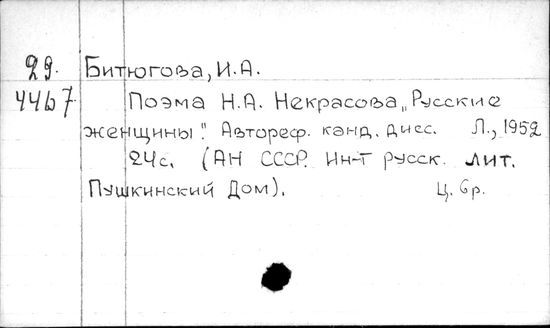 29. Битюгова, И.А.
4467 Поэма Н.А. Некрасова „Русские
женщины". Автореф. канд. дисс. Л., 1952
24с. (АН СССР. Ин-т русск. лит.
Пушкинский Дом). Ц. бр.